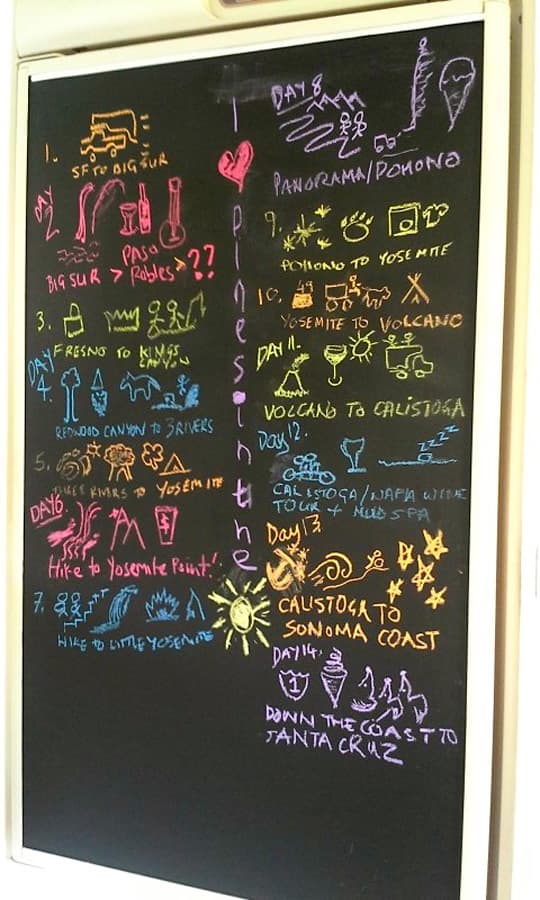 1.
SF TO BIG SUR
DAY
2
BIG SUR > PASO
Robles > ??
3.
FRESNO TO KINGS
CANYON
DAY
4.
REDWOOD CANYON TO 3 RIVERS
5.
THREE RIVERS TO YOSEMITE
DAY 6
$
Hike to Yosemite Point!
7.
HIKE TO LITTLE YOSEMITE
I
pinesinthe
DAY 8
PANORAMA/POHONO
9.
POHONO TO YOSEMITE
10.
YOSEMITE TO VOLCANO
DAY 11.
VOLCANO TO CALISTOGA
Day 12.
zzzz
CALISTOGA/NAPA WINE
TOUR + MUD SPA
Day 13.
CALISTOGA TO
SONOMA COAST
DAY 14.
1
DOWN THE COAST TO
SANTA CRUZ